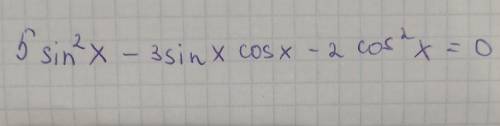 5 sin²x - 3sinx cosx - 2 cos²x = 0